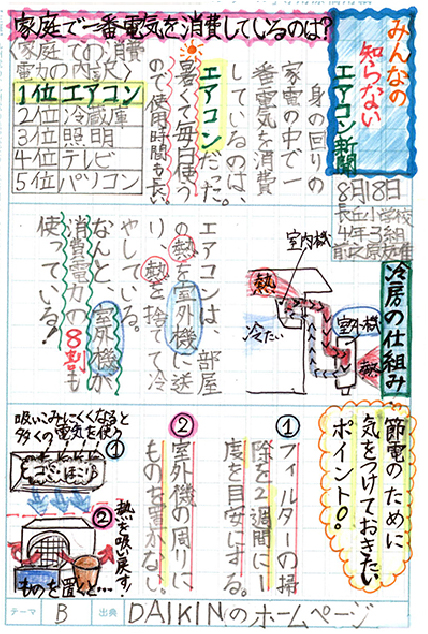 みんなの
知らない
エアコン新聞
8月18日
長丘小学校
4年3組
家庭で一番電気を消費しているのは?
身の回りの
家電の中で一
番電気を消費
しているのは、
エアコンだった。
暑くて毎日使う
ので使用時間も長い
家庭での消費
電力の内訳
1位 エアコン
2位 冷蔵庫
3位 照明
4位 テレビ
5位 パソコン
冷房の仕組み
室内機
熱
冷たい
室外機
熱
エアコンは、部屋
の熱を室外機に送
り、熱を捨てて冷
やしている。
なんと、室外機が
消費電力の8割も
使っている!
節電のために
気をつけておきたい
ポイント!。
①フィルターの掃
除を2週間に1
度を目安にする。
②室外機の周りに
ものを置かない。
吸いこみにくくなると
多くの電気を使う
①
ほこり
②
熱を吸い戻す!
ものを置くと…
テーマ B 出典 DAIKINのホームページ